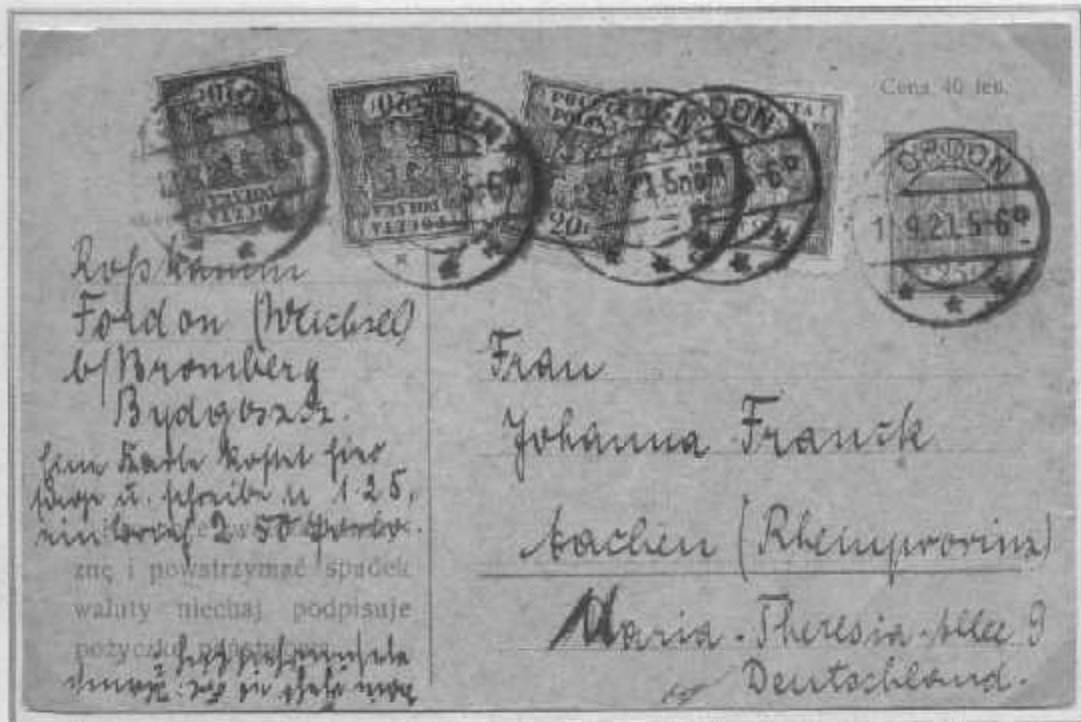 Cena 40 fen.
POCZTA
POLSKA
20
FORDON
9.21.5-6
Roßkamm
Fordon (Weichsel)
b/ Bromberg
Bydgoszcz.
Eine Karte kostet hier
sage u. schreibe M 1.25,
ein Brief 2.50 Porto.
znę i powstrzymać spadek
waluty niechaj podpisuje
pożyczkę państwową
Frau
Johanna Franck
Aachen (Rheinprovinz)
Maria-Theresia-Allee 9
Deutschland.